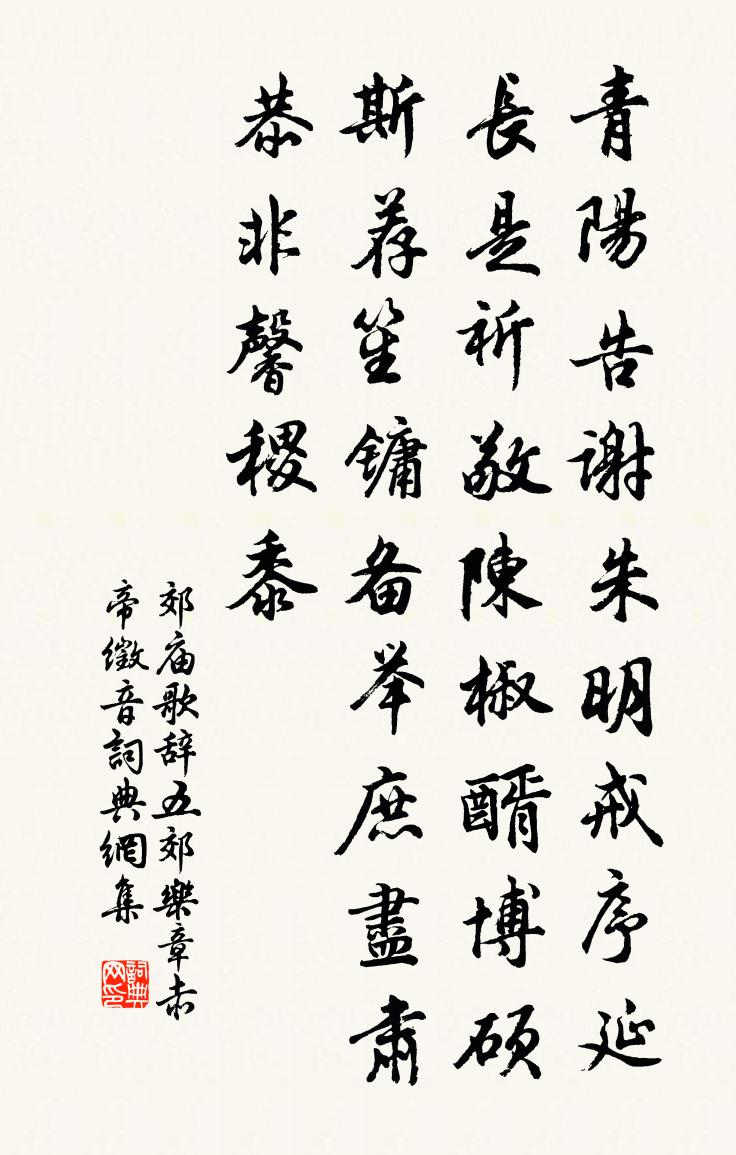 青陽告谢朱明戒序延
長是祈敬陳椒醑博碩
斯荐笙鏞备举庶盡肅
恭非馨稷黍
郊庙歌辞五郊樂章赤
帝徵音詞典網集
詞典
网印